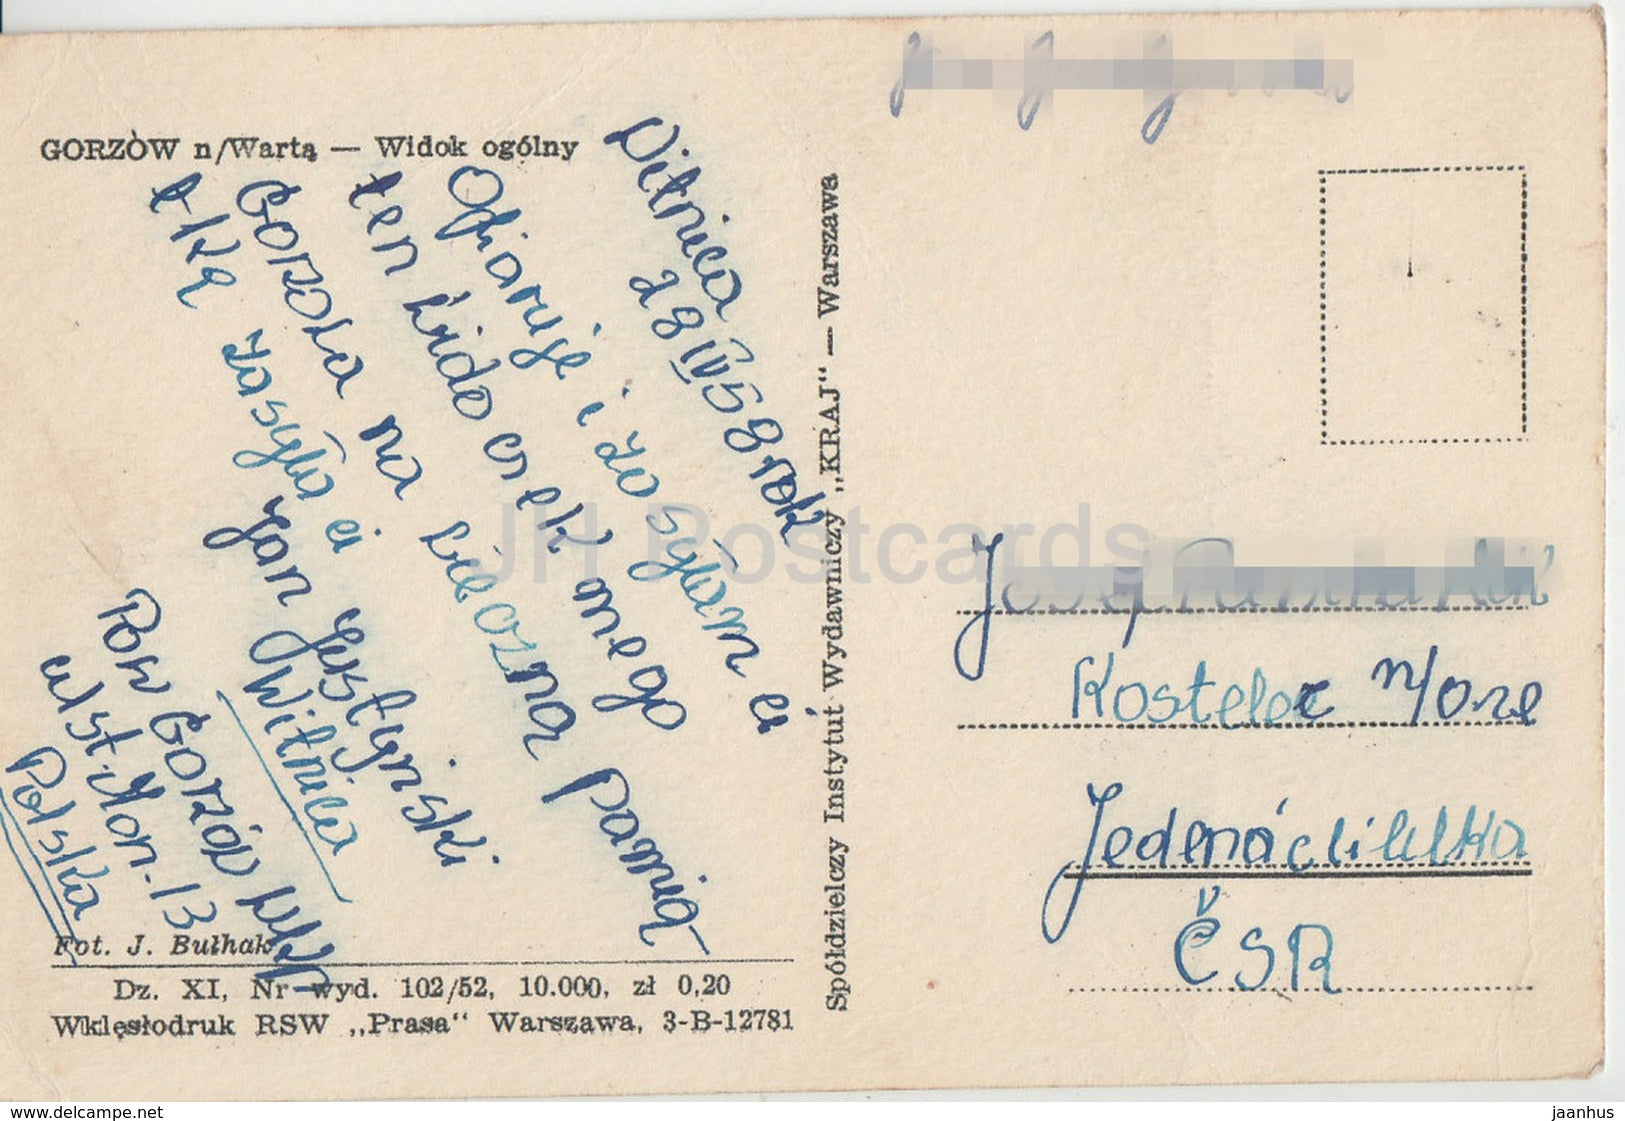 GORZÒW n/Wartą — Widok ogólny
Witnica
28 IV 58 rok
Ofiaruje i zasyłam ci
ten widoczek mego
Gorzowa na wieczna pamią
tkę zasyła ci
Jan
Witnica
Pow Gorzów Wlkp
Polska
Fot. J. Bułhak
Dz. XI, Nr wyd. 102/52, 10.000, zł 0,20
Wklęsłodruk RSW „Prasa“ Warszawa, 3-B-12781
Spółdzielczy Instytut Wydawniczy „KRAJ“ — Warszawa
Josef
Kostelec n/
ČSR
JH Postcards
www.delcampe.net
jaanhus